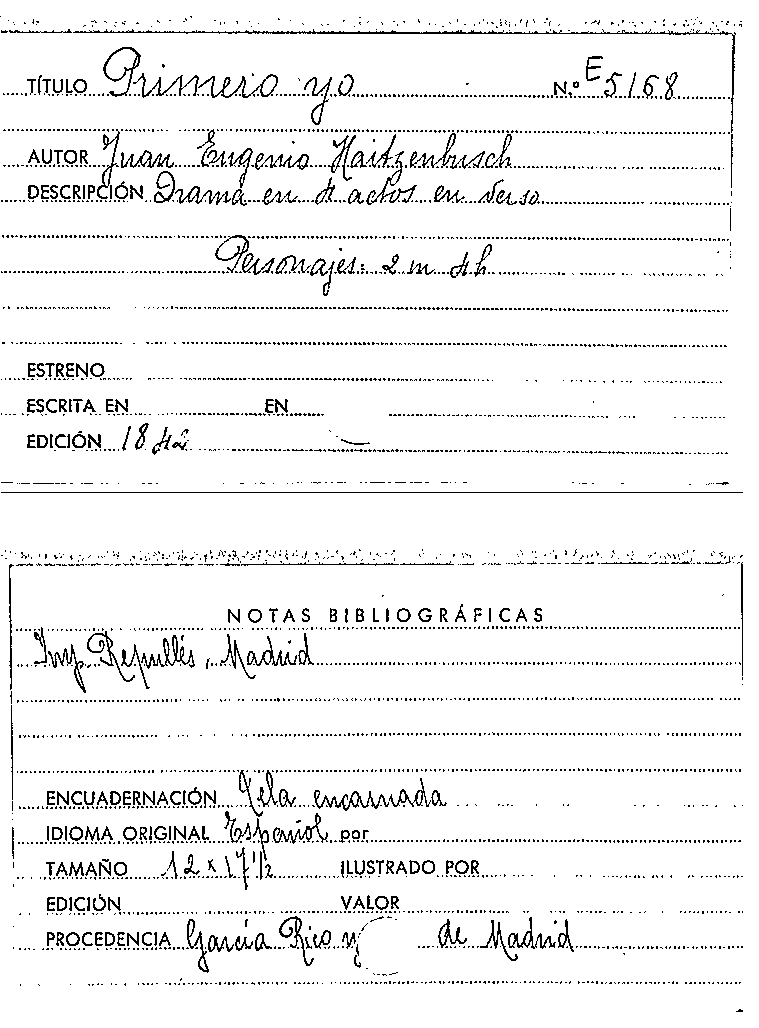 TÍTULO Primero yo N.º E 5168
AUTOR Juan Eugenio Haitzenbusch
DESCRIPCIÓN Drama en 4 actos en verso
Personajes: 2 m 4 h
ESTRENO
ESCRITA EN EN
EDICIÓN 1842
NOTAS BIBLIOGRÁFICAS
Imp. Repullés, Madrid
ENCUADERNACIÓN Tela encarnada
IDIOMA ORIGINAL Español por
TAMAÑO 12 x 17 1/2 ILUSTRADO POR
EDICIÓN VALOR
PROCEDENCIA García Rico y de Madrid